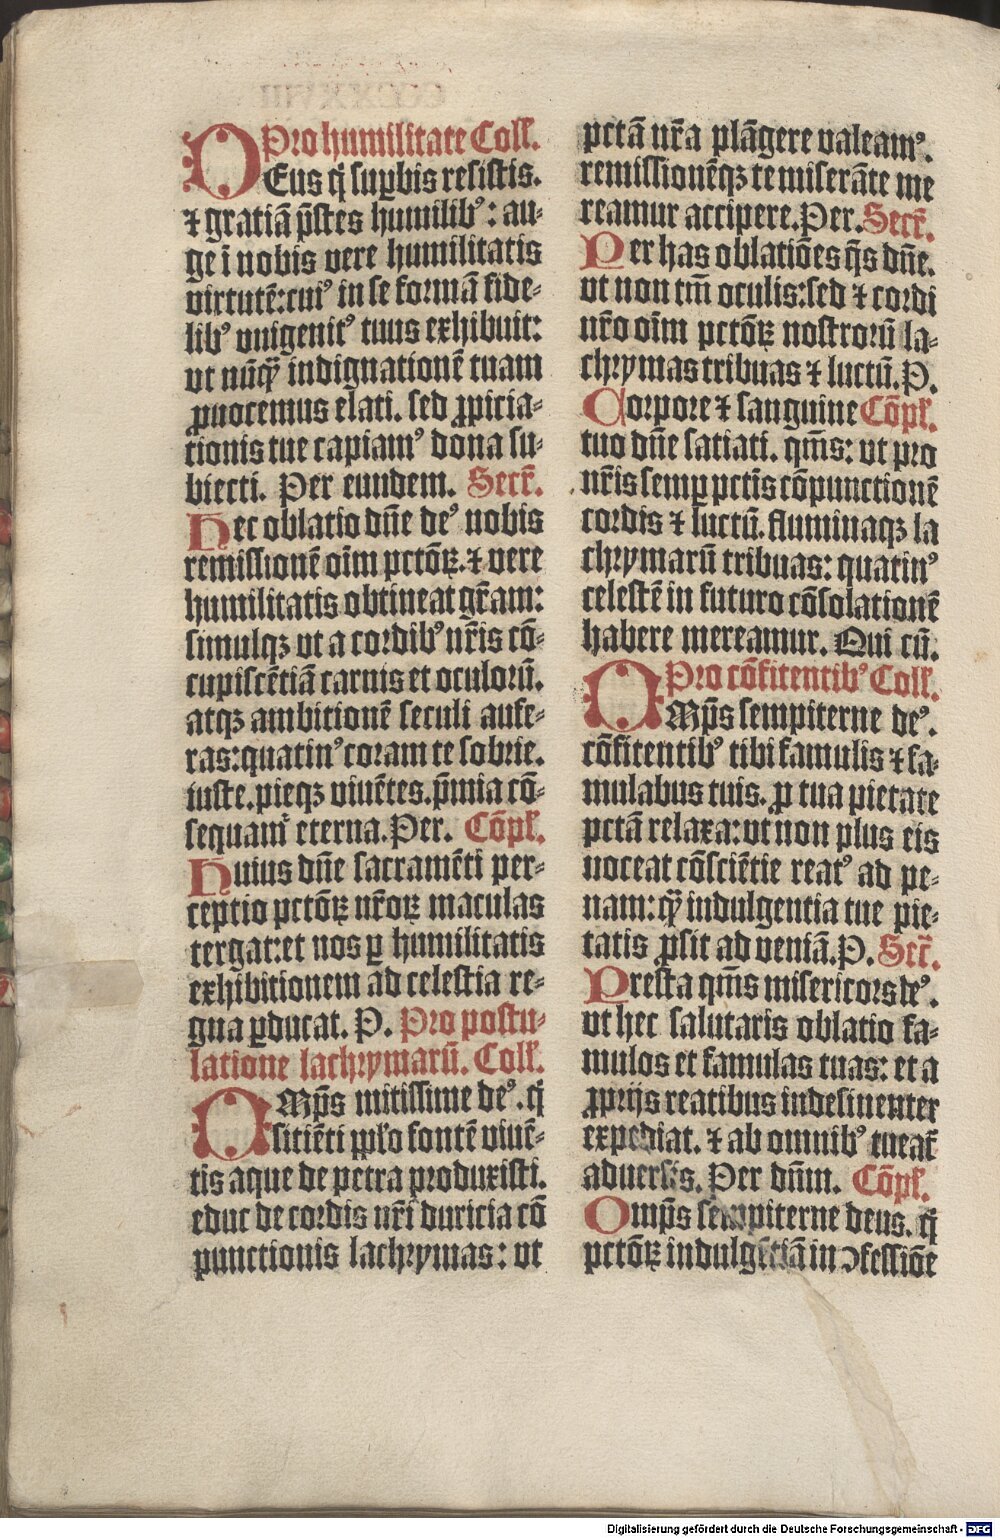 Pro humilitate Coll̃.
DEus q̃ sup̱bis resistis.
⁊ gratiã p̃stes humilibꝰ: au⸗
ge ĩ nobis vere humilitatis
virtutẽ: cuiꝰ in se formã fide⸗
libꝰ vnigenitꝰ tuus exhibuit:
vt nũq̃ꝫ indignationẽ tuam
ꝓuocemus elati. sed ꝓpicia⸗
tionis tue capiamꝰ dona su⸗
biecti. Per eundem. Secr̃.
Hec oblatio dñe deꝰ nobis
remissionẽ oĩm pctõꝝ. ⁊ vere
humilitatis obtineat gr̃am:
simulqꝫ vt a cordibꝰ nr̃is cõ⸗
cupiscẽtiã carnis et oculorũ.
atqꝫ ambitionẽ seculi aufe⸗
ras: quatinꝰ coram te sobrie.
iuste. pieqꝫ viuẽtes. p̃mia cõ⸗
sequamꝰ eterna. Per. Cõpl̃.
Huius dñe sacramẽti per⸗
ceptio pctõꝝ nr̃oꝝ maculas
tergat: et nos ꝑ humilitatis
exhibitionem ad celestia re⸗
gna ꝑducat. P. Pro postu⸗
latione lachrymarũ. Coll̃.
OMp̃s mitissime deꝰ. q̃
sitiẽti pplo fontẽ viuẽ⸗
tis aque de petra produxisti.
educ de cordis nr̃i duricia cõ
punctionis lachrymas: vt
pctã nr̃a plãgere valeamꝰ.
remissionẽqꝫ te miserãte me
reamur accipere. Per. Secr̃.
Per has oblatiões q̃s dñe.
vt non tm̃ oculis: sed ⁊ cordi
nr̃o oĩm pctõꝝ nostrorũ la⸗
chrymas tribuas ⁊ luctũ. P.
Corpore ⁊ sanguine Cõpl̃.
tuo dñe satiati. qm̃s: vt pro
nr̃is semꝑ pctis cõpunctionẽ
cordis ⁊ luctũ. fluminaqꝫ la
chrymarũ tribuas: quatinꝰ
celestẽ in futuro cõsolationẽ
habere mereamur. Qui cũ.
Pro cõfitentibꝰ Coll̃.
OMp̃s sempiterne deꝰ.
cõfitentibꝰ tibi famulis ⁊ fa⸗
mulabus tuis. ꝓ tua pietate
pctã relaxa: vt non plus eis
noceat cõsciẽtie reatꝰ ad pe⸗
nam: q̃ꝫ indulgentia tue pie⸗
tatis ꝓsit ad veniã. P. Secr̃.
Presta qm̃s misericors deꝰ.
vt hec salutaris oblatio fa⸗
mulos et famulas tuas: et a
ꝓprijs reatibus indesinenter
expediat. ⁊ ab omnibꝰ tueat̃
aduersis. Per dñm. Cõpl̃.
Omp̃s sempiterne deus. q̃
pctõꝝ indulgẽtiã in ꝯfessiõe
Digitalisierung gefördert durch die Deutsche Forschungsgemeinschaft - DFG